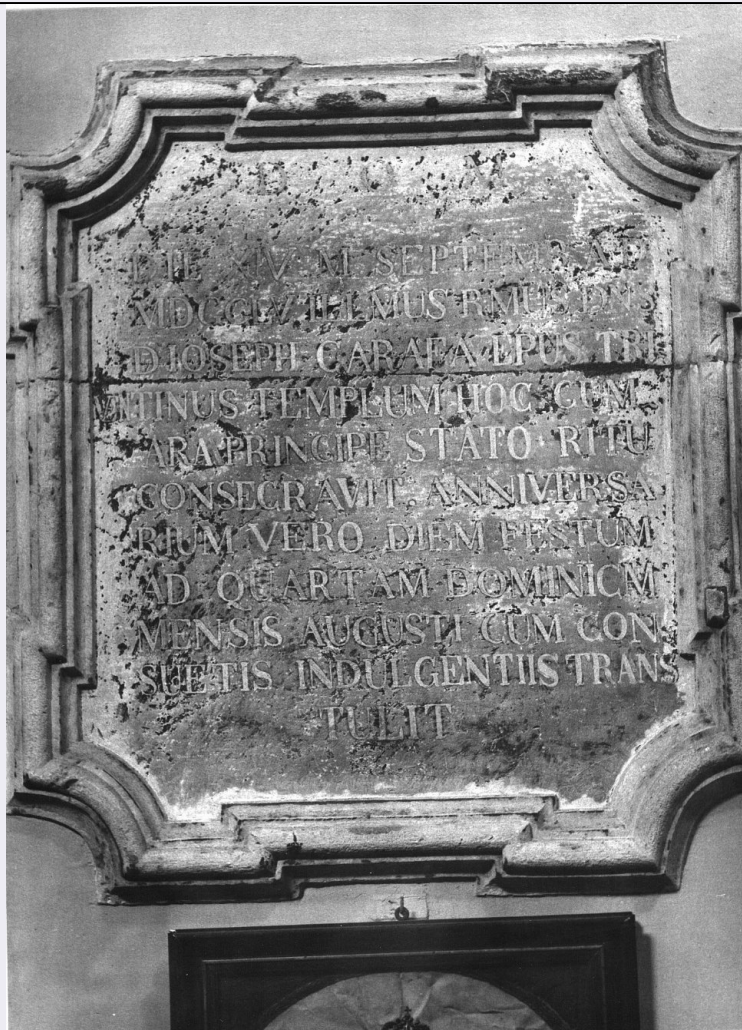 D O M
DIE XIV M SEPTEMB AN
XIDCCLV ILLMUS RMUS DNS
D IOSEPH CARAFA EPUS TRI
VITINUS TEMPLUM HOC CUM
ARA PRINCIPE STATO RITU
CONSECRAVIT. ANNIVERSA
RIUM VERO DIEM FESTUM
AD QUARTAM DOMINICM
MENSIS AUGUSTI CUM CON
SUETIS INDULGENTIIS TRANS
TULIT